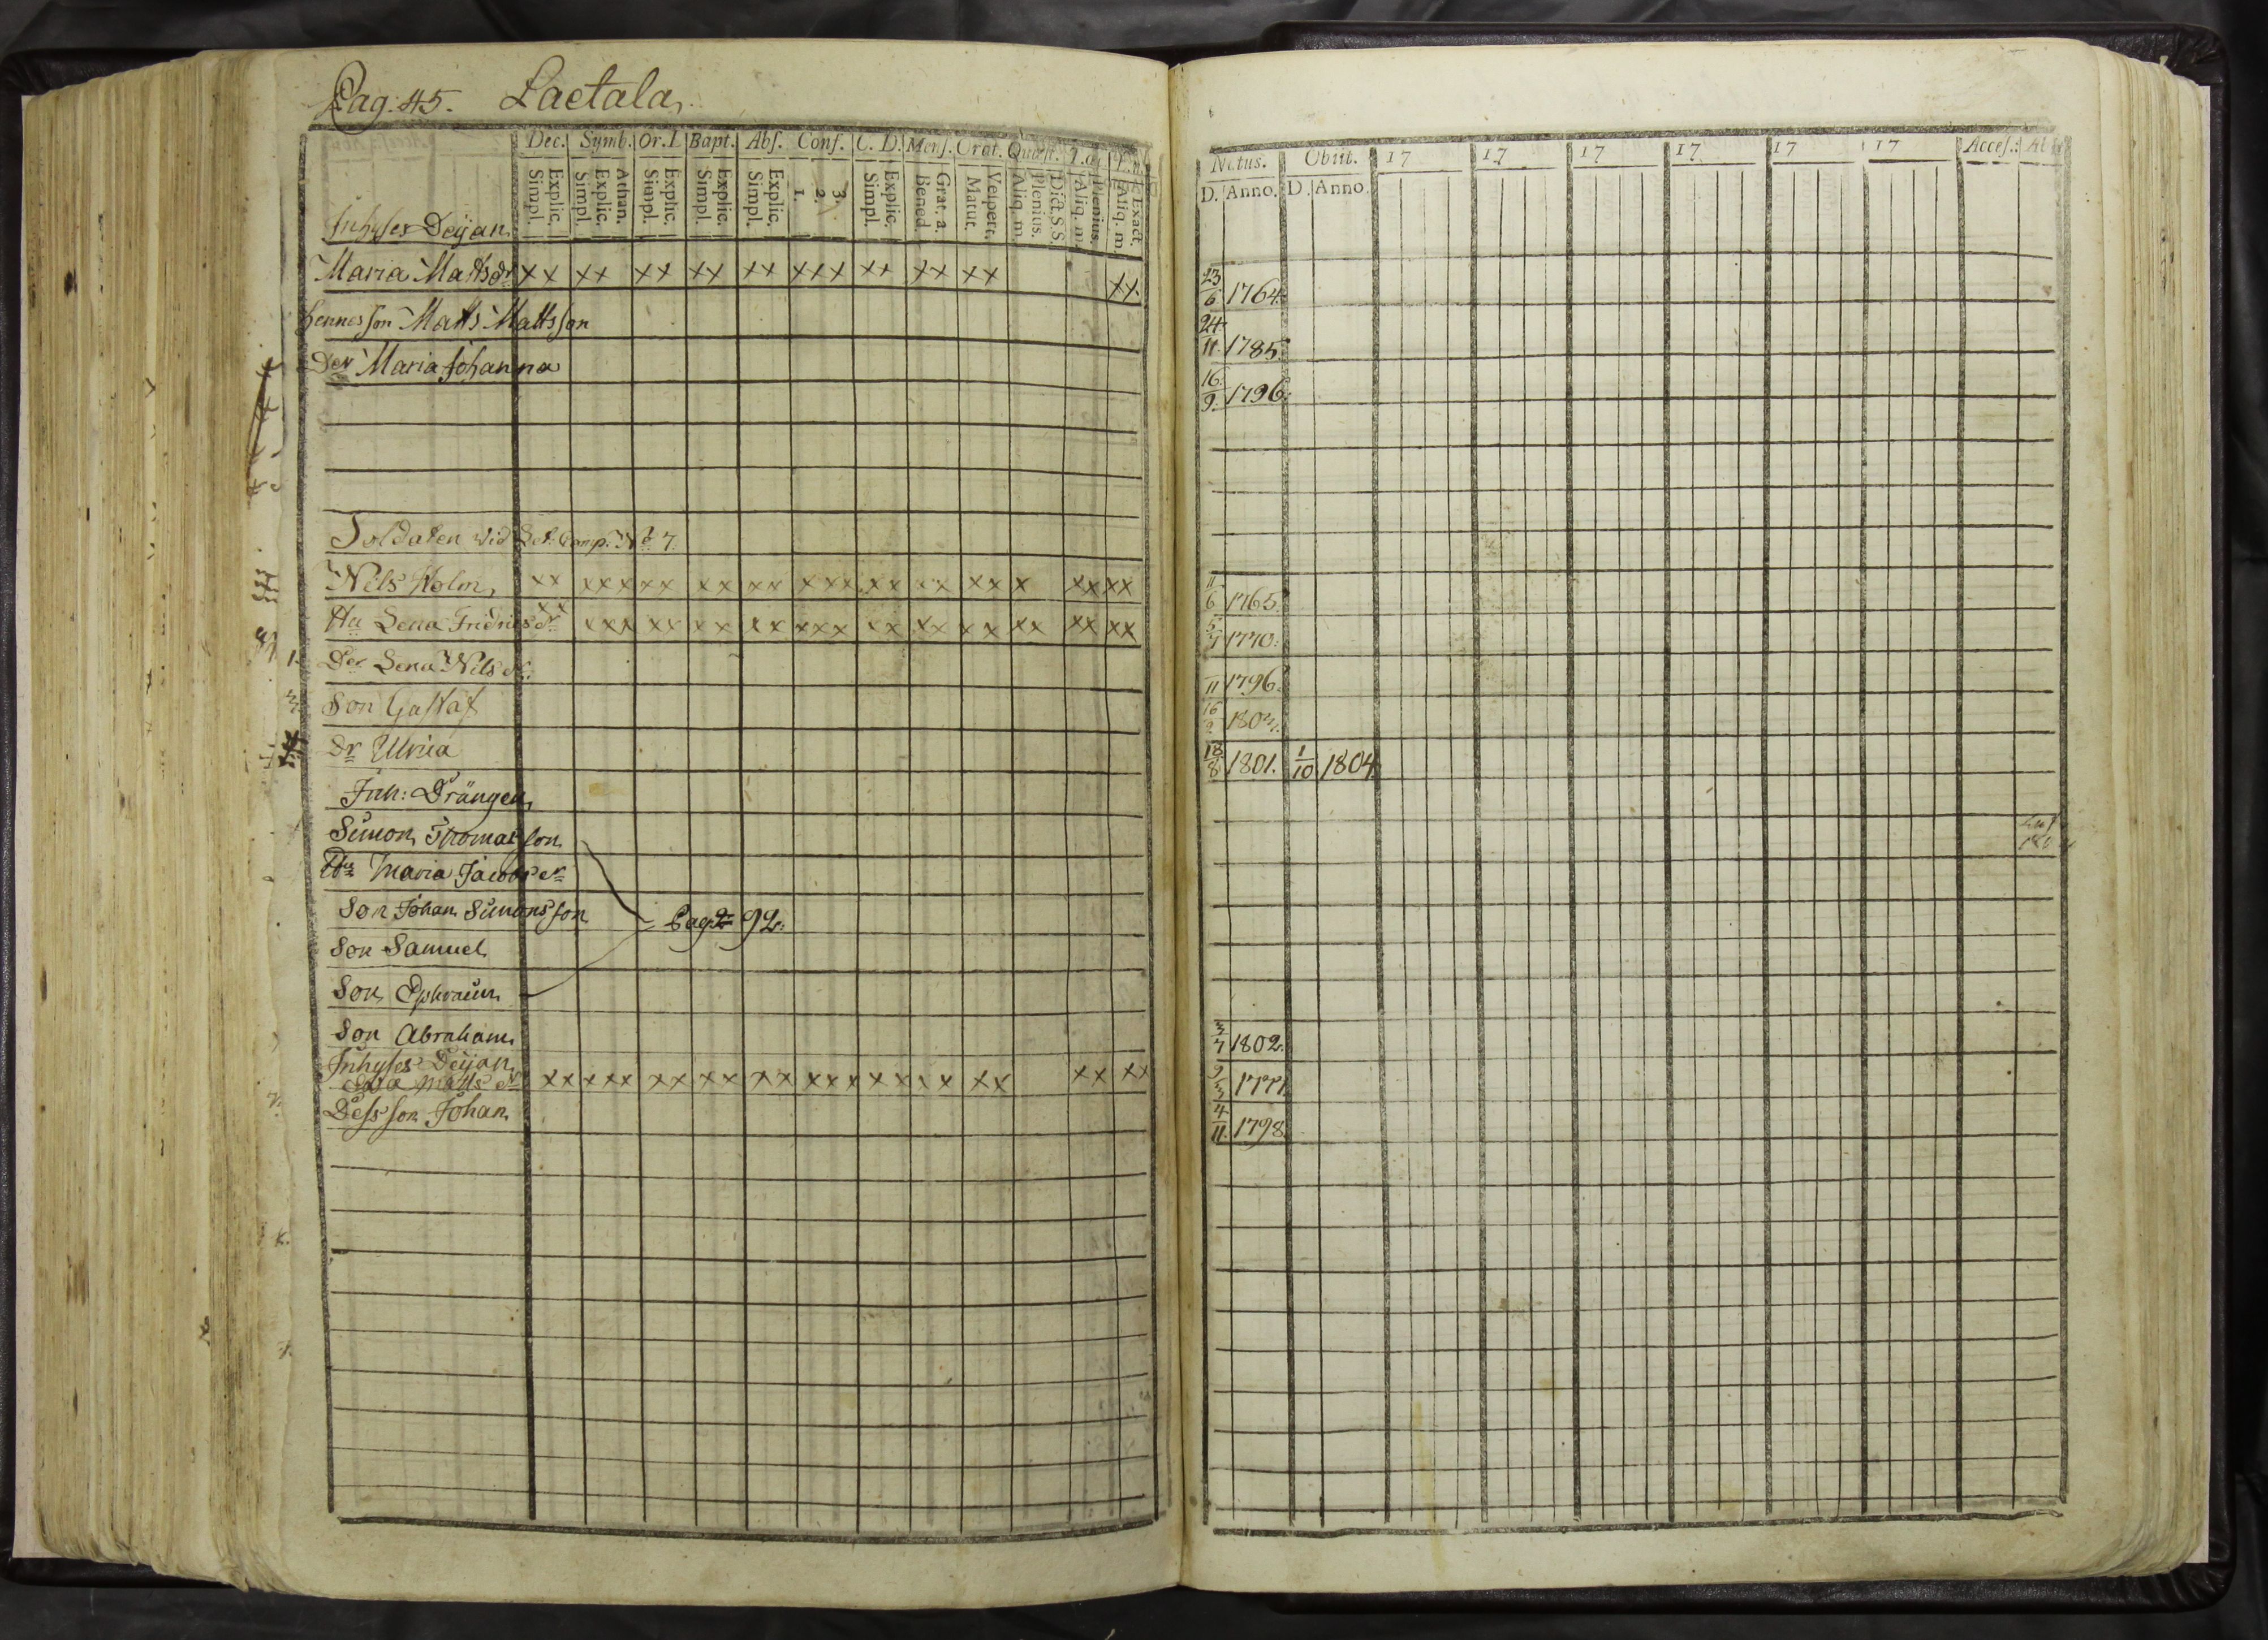 Pag: 45. Laetala
Dec. Symb. Or. D. Bapt. Abs. Conf. C. D. Mens. Orat. Quæst.
Explic. Simpl. Athan. Explic. Simpl. Explic. Simpl. Explic. Simpl. Explic. Simpl. 3. 2. 1. Explic. Simpl. Grat. a. Bened. Vespert. Matut. Dict. S.S. Plenius. Aliq. m. Plenius. Aliq. m. Exact. Aliq. m.
Natus. Obiit. 17 17 17 17 17 17 Acces.
D. Anno. D. Anno.
Inhyses Deijan
Maria Matts dr xx xx xx xx xx xxx xx xx xx xx. 23/6 1764.
hennes son Matts Mattsson 24/11. 1785.
Der Maria Johanna 16/9. 1796.
Soldaten wid Comp. No 7.
Nils Holm xx xxx xx xx xx xxx xx xx xx x xx xx 11/6 1765.
Hu Lena Fridrics dr xx xxx xx xx xx xxx xx xx xx xx xx xx 1770.
1. Der Lena Nils dr. 11 1796.
Son Gustaf 16
Dr Ulrica 18/8 1801. 1/10 1804
Inh: Drängen
Simon Thomasson
Hu Maria Jacobs dr
Son Johan Simonsson Pag 92.
Son Samuel
Son Ephraim
Son Abraham 3/7 1802.
Inhyses Deijan
Matts dr xx xxx xx xx xx xxx xx xx xx xx xx 9/3 1771
Dess son Johan 4/11. 1798